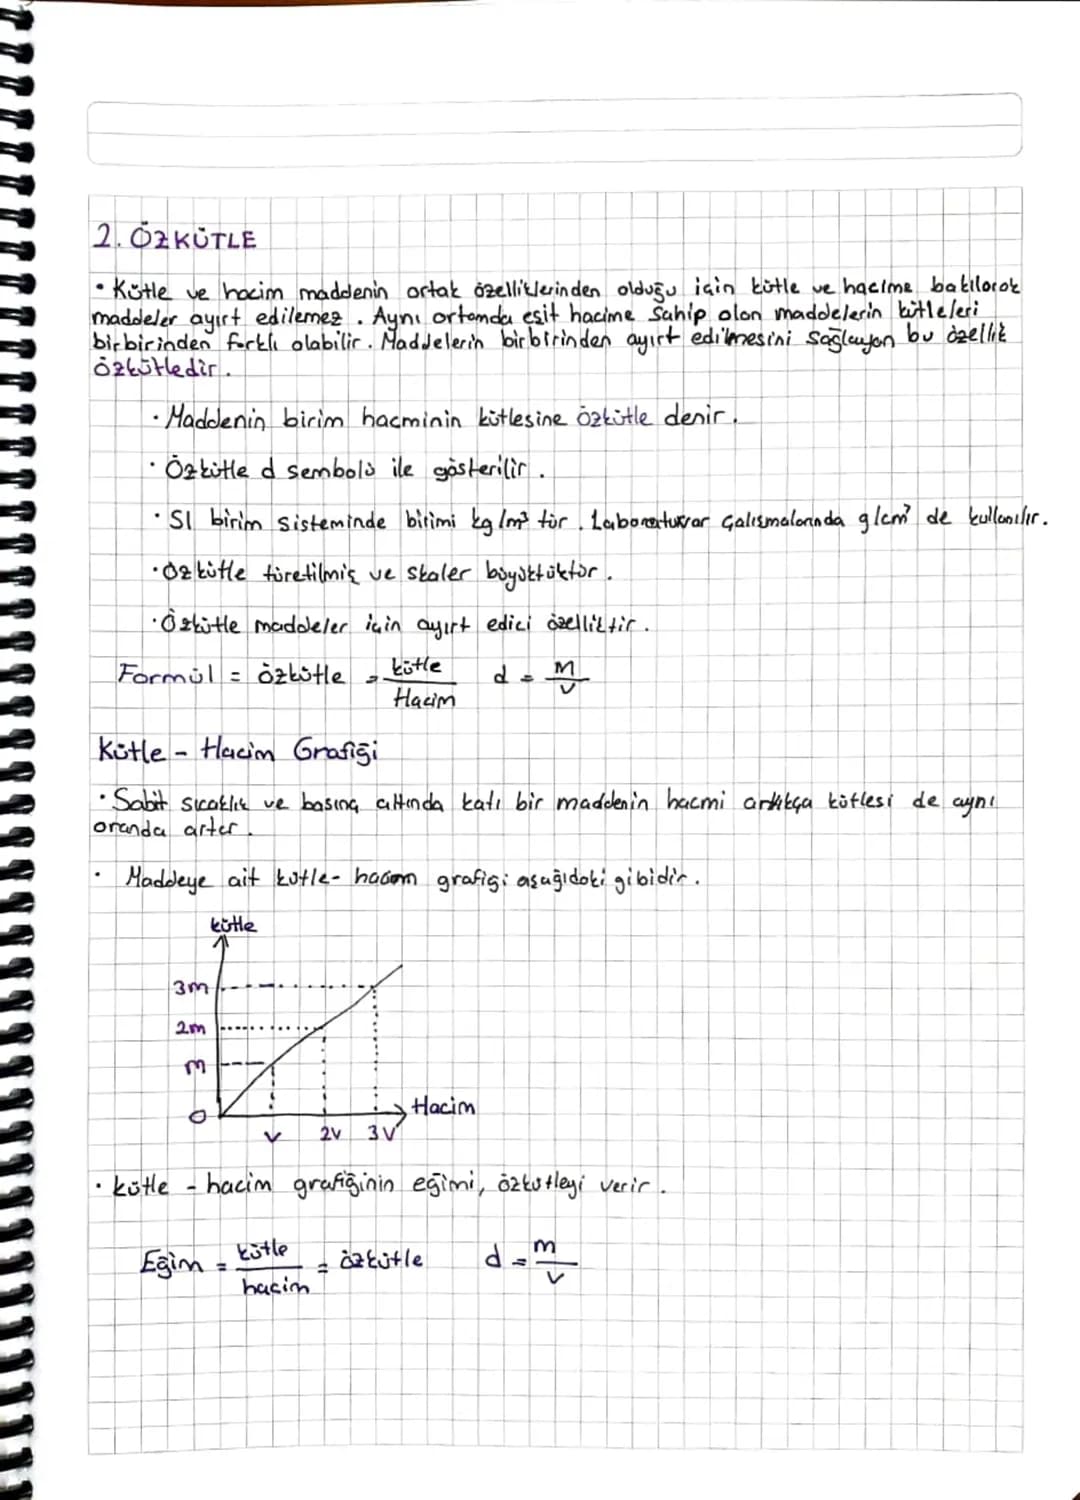 2. ÖZKÜTLE
• Kütle ve hacim maddenin ortak özelliklerinden olduğu için kütle ve hacime bakılarak
maddeler ayırt edilemez. Aynı ortamda eşit hacime sahip olan maddelerin kütleleri
birbirinden farklı olabilir. Maddelerin birbirinden ayırt edilmesini sağlayan bu özellik
özkütledir.
• Maddenin birim hacminin kütlesine özkütle denir.
• Özkütle d sembolü ile gösterilir.
• SI birim sisteminde birimi kg/m³ tür. Laboratuvar çalışmalarında g/cm³ de kullanılır.
• Özkütle türetilmiş ve skaler büyüklüktür.
• Özkütle maddeler için ayırt edici özelliktir.
Formül = özkütle = kütle / Hacim d = M / V
Kütle - Hacim Grafiği
• Sabit sıcaklık ve basınç altında katı bir maddenin hacmi arttıkça kütlesi de aynı
oranda artar.
• Maddeye ait kütle- hacim grafiği aşağıdaki gibidir.
kütle
3m
2m
m
0
Hacim
v 2v 3v
• kütle - hacim grafiğinin eğimi, özkütleyi verir.
Eğim = kütle / hacim = özkütle d = m / v